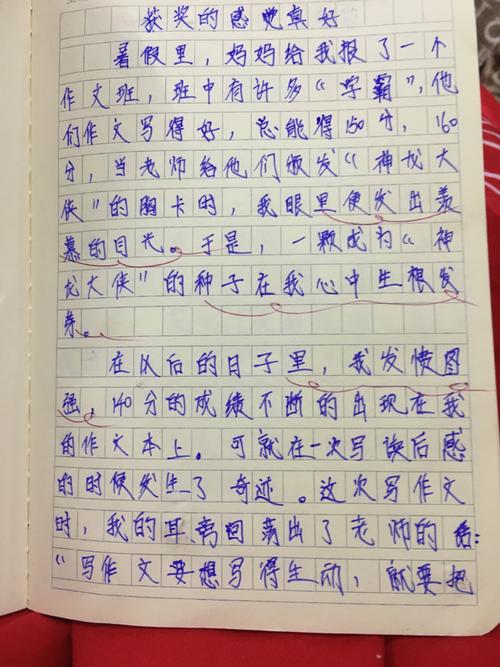 获奖的感觉真好
暑假里，妈妈给我报了一个
作文班，班中有许多“学霸”，他
们作文写得好，总能得150分，160
分，当老师给他们颁发“神龙大
侠”的胸卡时，我眼里便发出羡
慕的目光。于是，一颗成为“神
龙大侠”的种子在我心中生根发
芽。
在以后的日子里，我发愤图
强，140分的成绩不断的出现在我
的作文本上。可就在一次写读后感
的时候发生了奇迹。这次写作文
时，我的耳离回荡出了老师的话：
“写作文要想写得生动，就要把